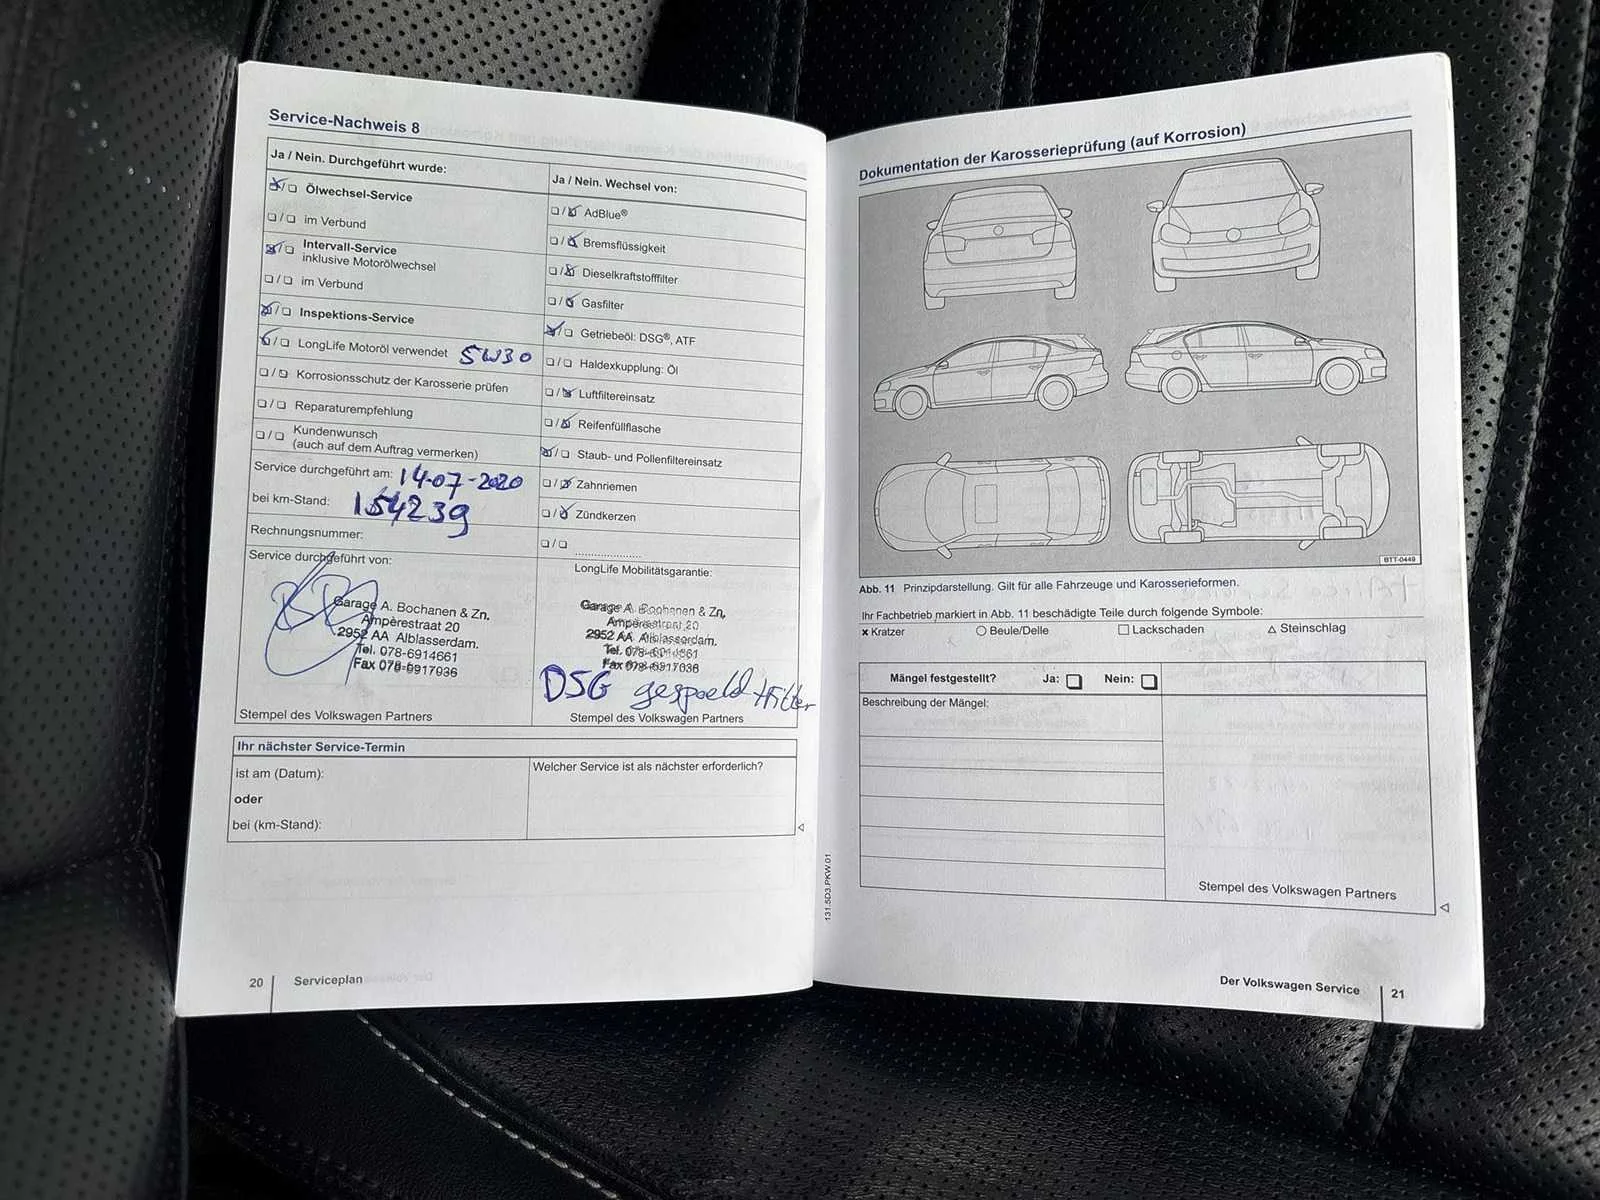 Service-Nachweis 8
Ja / Nein. Durchgeführt wurde:
Ölwechsel-Service
im Verbund
Intervall-Service
inklusive Motorölwechsel
im Verbund
Inspektions-Service
LongLife Motoröl verwendet 5W30
Korrosionsschutz der Karosserie prüfen
Reparaturempfehlung
Kundenwunsch
(auch auf dem Auftrag vermerken)
Service durchgeführt am: 14-07-2020
bei km-Stand: 154239
Rechnungsnummer:
Service durchgeführt von:
Garage A. Bochanen & Zn.
Ampèrestraat 20
2952 AA Alblasserdam.
Tel. 078-6914661
Fax 078-6917036
Stempel des Volkswagen Partners
Ja / Nein. Wechsel von:
AdBlue®
Bremsflüssigkeit
Dieselkraftstofffilter
Gasfilter
Getriebeöl: DSG®, ATF
Haldexkupplung: Öl
Luftfiltereinsatz
Reifenfüllflasche
Staub- und Pollenfiltereinsatz
Zahnriemen
Zündkerzen
LongLife Mobilitätsgarantie:
Garage A. Bochanen & Zn.
Ampèrestraat 20
2952 AA Alblasserdam.
Tel. 078-6914661
Fax 078-6917036
DSG gespoeld + filter
Stempel des Volkswagen Partners
Ihr nächster Service-Termin
ist am (Datum):
oder
bei (km-Stand):
Welcher Service ist als nächster erforderlich?
20 Serviceplan
131.5D3.PKW.01
Dokumentation der Karosserieprüfung (auf Korrosion)
BTT-0449
Abb. 11 Prinzipdarstellung. Gilt für alle Fahrzeuge und Karosserieformen.
Ihr Fachbetrieb markiert in Abb. 11 beschädigte Teile durch folgende Symbole:
x Kratzer ○ Beule/Delle □ Lackschaden △ Steinschlag
Mängel festgestellt? Ja: Nein:
Beschreibung der Mängel:
Stempel des Volkswagen Partners
Der Volkswagen Service 21